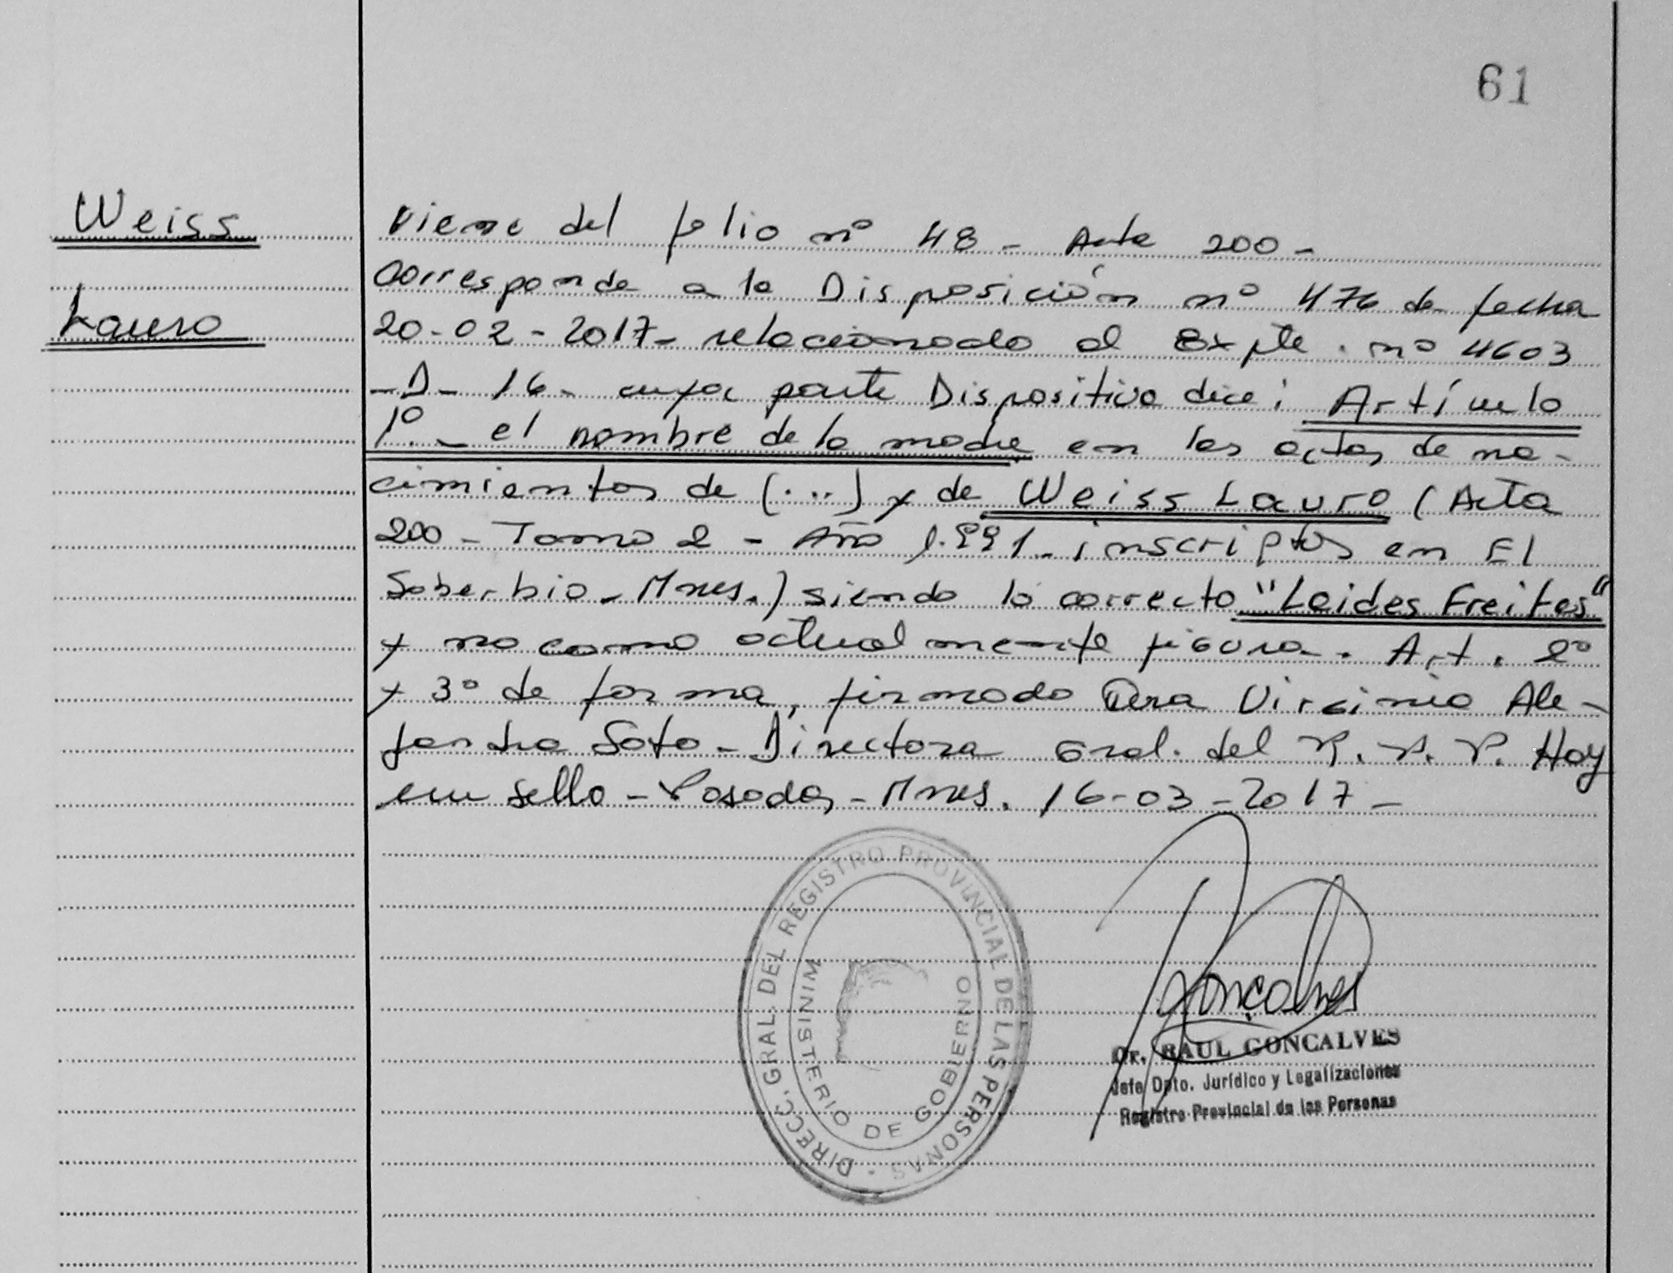 61
Weiss
Lauro
Viene del folio nº 48 - Acta 200 -
Corresponde a la Disposición nº 476 de fecha
20-02-2017- relacionado al Expte. nº 4603
-D- 16- cuya parte Dispositiva dice: Artículo
1º.- el nombre de la madre en las actas de na-
cimientos de (...) y de Weiss Lauro (Acta
200 - Tomo 2 - Año 1.991- inscriptos en El
Soberbio - Mnes.) siendo lo correcto "Leides Freites"
y no como actualmente figura. Art. 2º
y 3º de forma, firmado Dra Virginia Ale-
jandra Soto - Directora Gral. del R. P. P. Hay
un sello - Posadas - Mnes. 16-03-2017 -
DIRECC. GRAL. DEL REGISTRO PROVINCIAL DE LAS PERSONAS
MINISTERIO DE GOBIERNO
Goncalves
Dr. RAUL GONCALVES
Jefe Dpto. Jurídico y Legalizaciones
Registro Provincial de las Personas